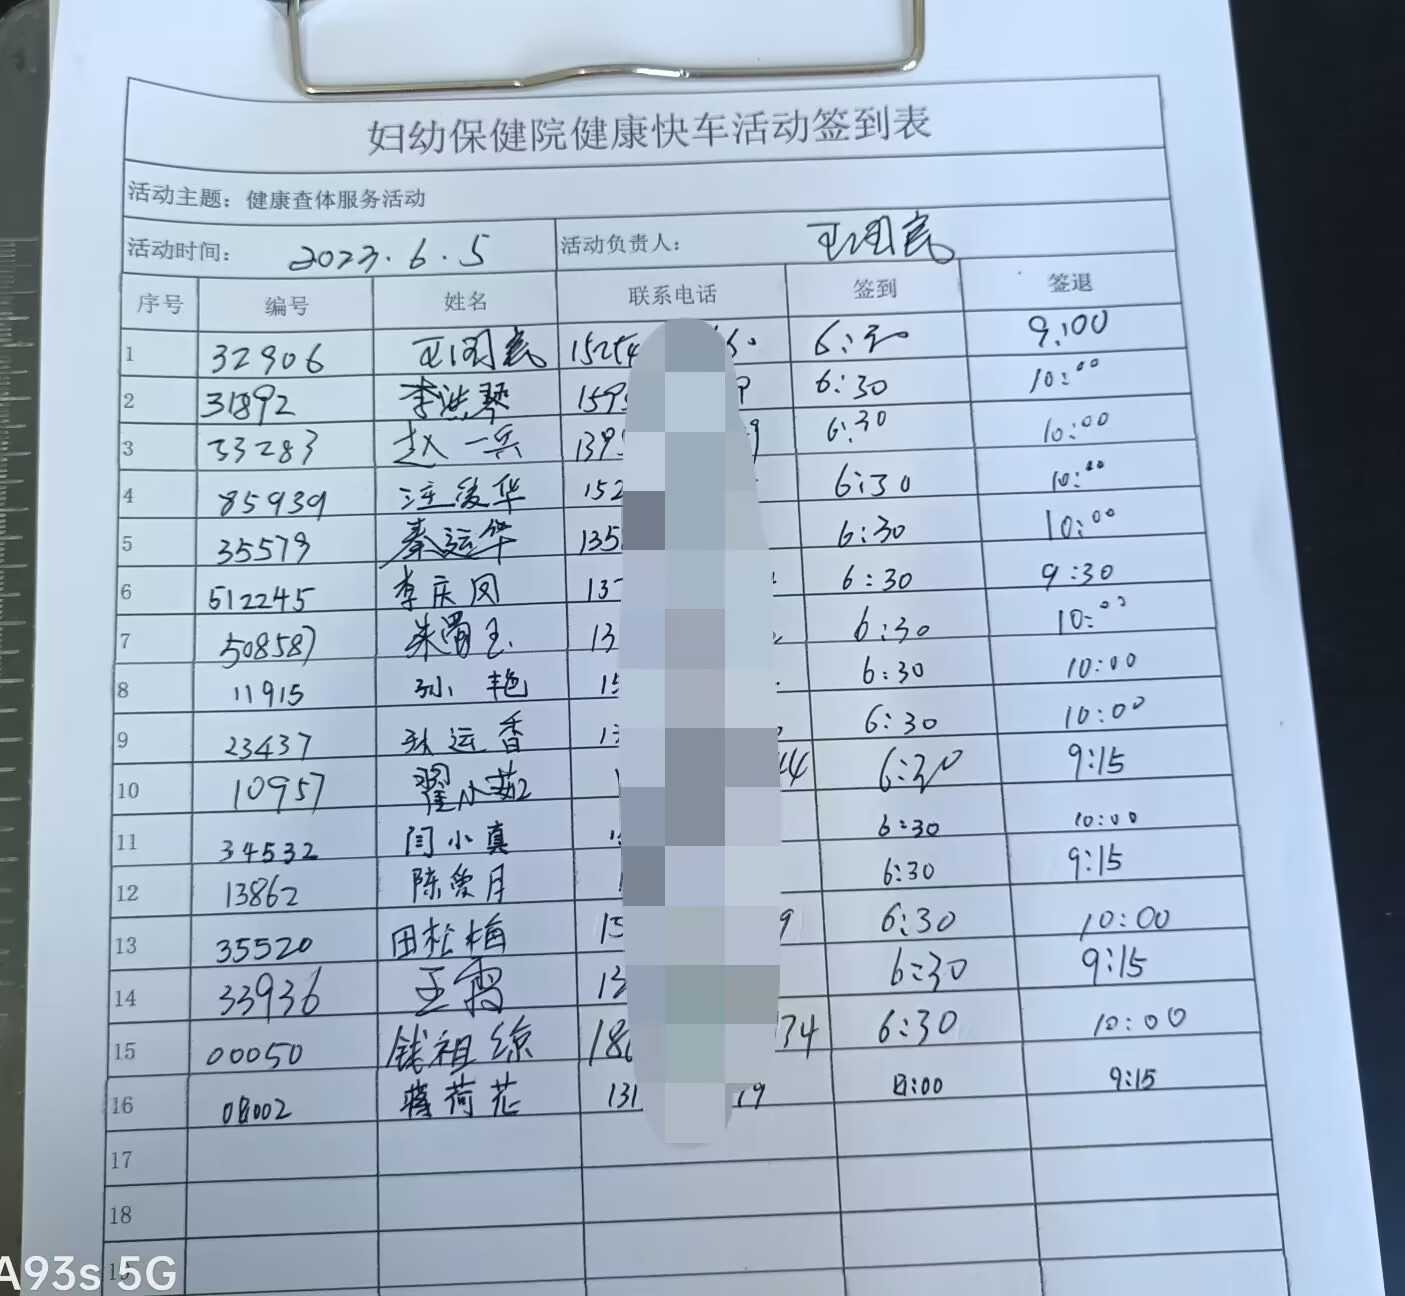 妇幼保健院健康快车活动签到表
活动主题：健康查体服务活动
活动时间： 2023.6.5 活动负责人：
序号 编号 姓名 联系电话 签到 签退
1 32906 6:30 9:00
2 31892 李洪琴 159 6:30 10:00
3 33283 赵一兵 139 6:30 10:00
4 85939 152 6:30 10:00
5 35579 秦运华 135 6:30 10:00
6 512245 李庆凤 137 6:30 9:30
7 508587 13 6:30 10:00
8 11915 孙艳 15 6:30 10:00
9 23437 运香 13 6:30 10:00
10 10957 翟小茹 44 6:30 9:15
11 34532 闫小真 6:30 10:00
12 13862 陈爱月 6:30 9:15
13 35520 田松梅 15 9 6:30 10:00
14 33936 王霞 13 6:30 9:15
15 00050 钱祖琼 18 34 6:30 10:00
16 蒋荷花 131 19 9:15
17
18
A93s 5G